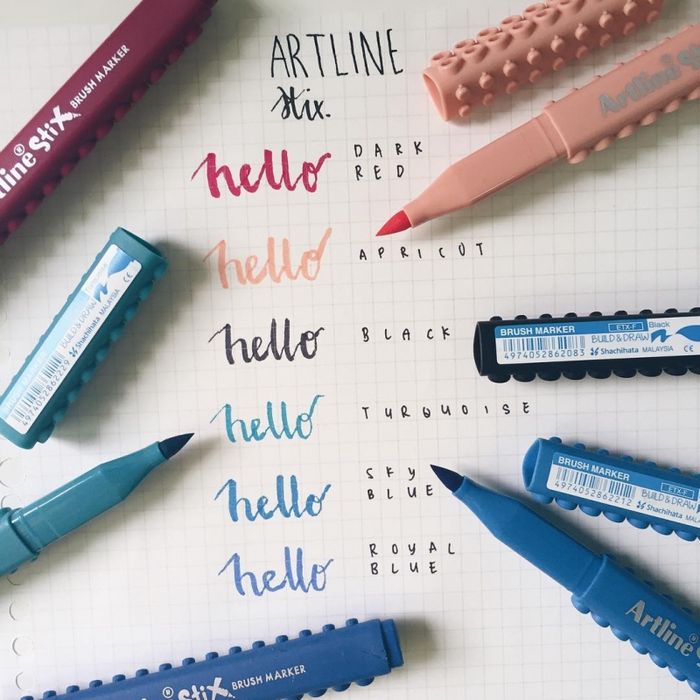 ARTLINE
stix.
Artline® Stix BRUSH MARKER
hello DARK RED
hello APRICOT
hello BLACK
hello TURQUOISE
hello SKY BLUE
hello ROYAL BLUE
Artline
BRUSH MARKER ETX-F Black
4974052862083 BUILD & DRAW
Shachihata MALAYSIA CE
Turquoise
BUILD & DRAW
4974052862229 Shachihata MALAYSIA CE
BRUSH MARKER ETX-F
4974052862212 BUILD & DRAW
Shachihata
Artline®
Stix® BRUSH MARKER